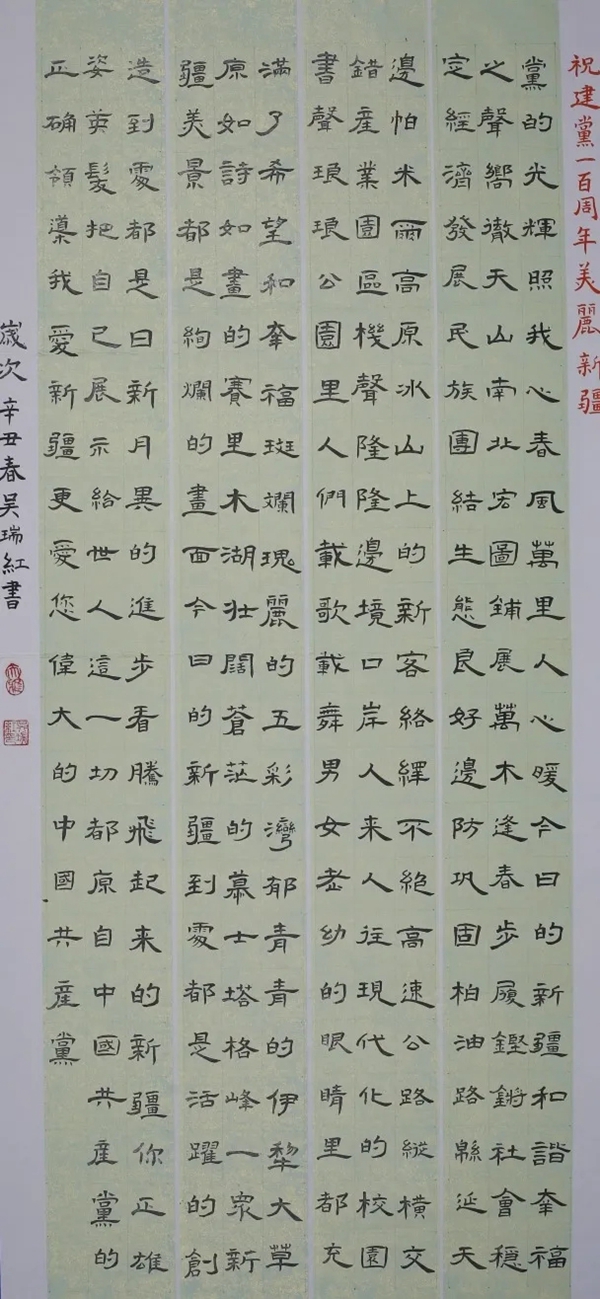 祝建黨一百周年美麗新疆
黨的光輝照我心春風萬里人心暖今日的新疆和諧幸福
之聲嚮徹天山南北宏圖鋪展萬木逢春步履鏗鏘社會穩
定經濟發展民族團結生態良好邊防巩固柏油路綿延天
邊帕米爾高原冰山上的新客絡繹不絕高速公路縱橫交
錯產業園區機聲隆隆邊境口岸人来人往現代化的校園
書聲琅琅公園里人們載歌載舞男女老幼的眼睛里都充
滿了希望和幸福斑斕瑰麗的五彩灣郁青青的伊犁大草
原如詩如畫的賽里木湖壯闊蒼茫的慕士塔格峰一眾新
疆美景都是絢爛的畫面今日的新疆到處都是活躍的創
造到處都是日新月異的進步看騰飛起来的新疆你正雄
姿英髮把自己展示給世人這一切都原自中國共產黨的
正确領導我愛新疆更愛您偉大的中國共產黨
歲次辛丑春吴瑞紅書